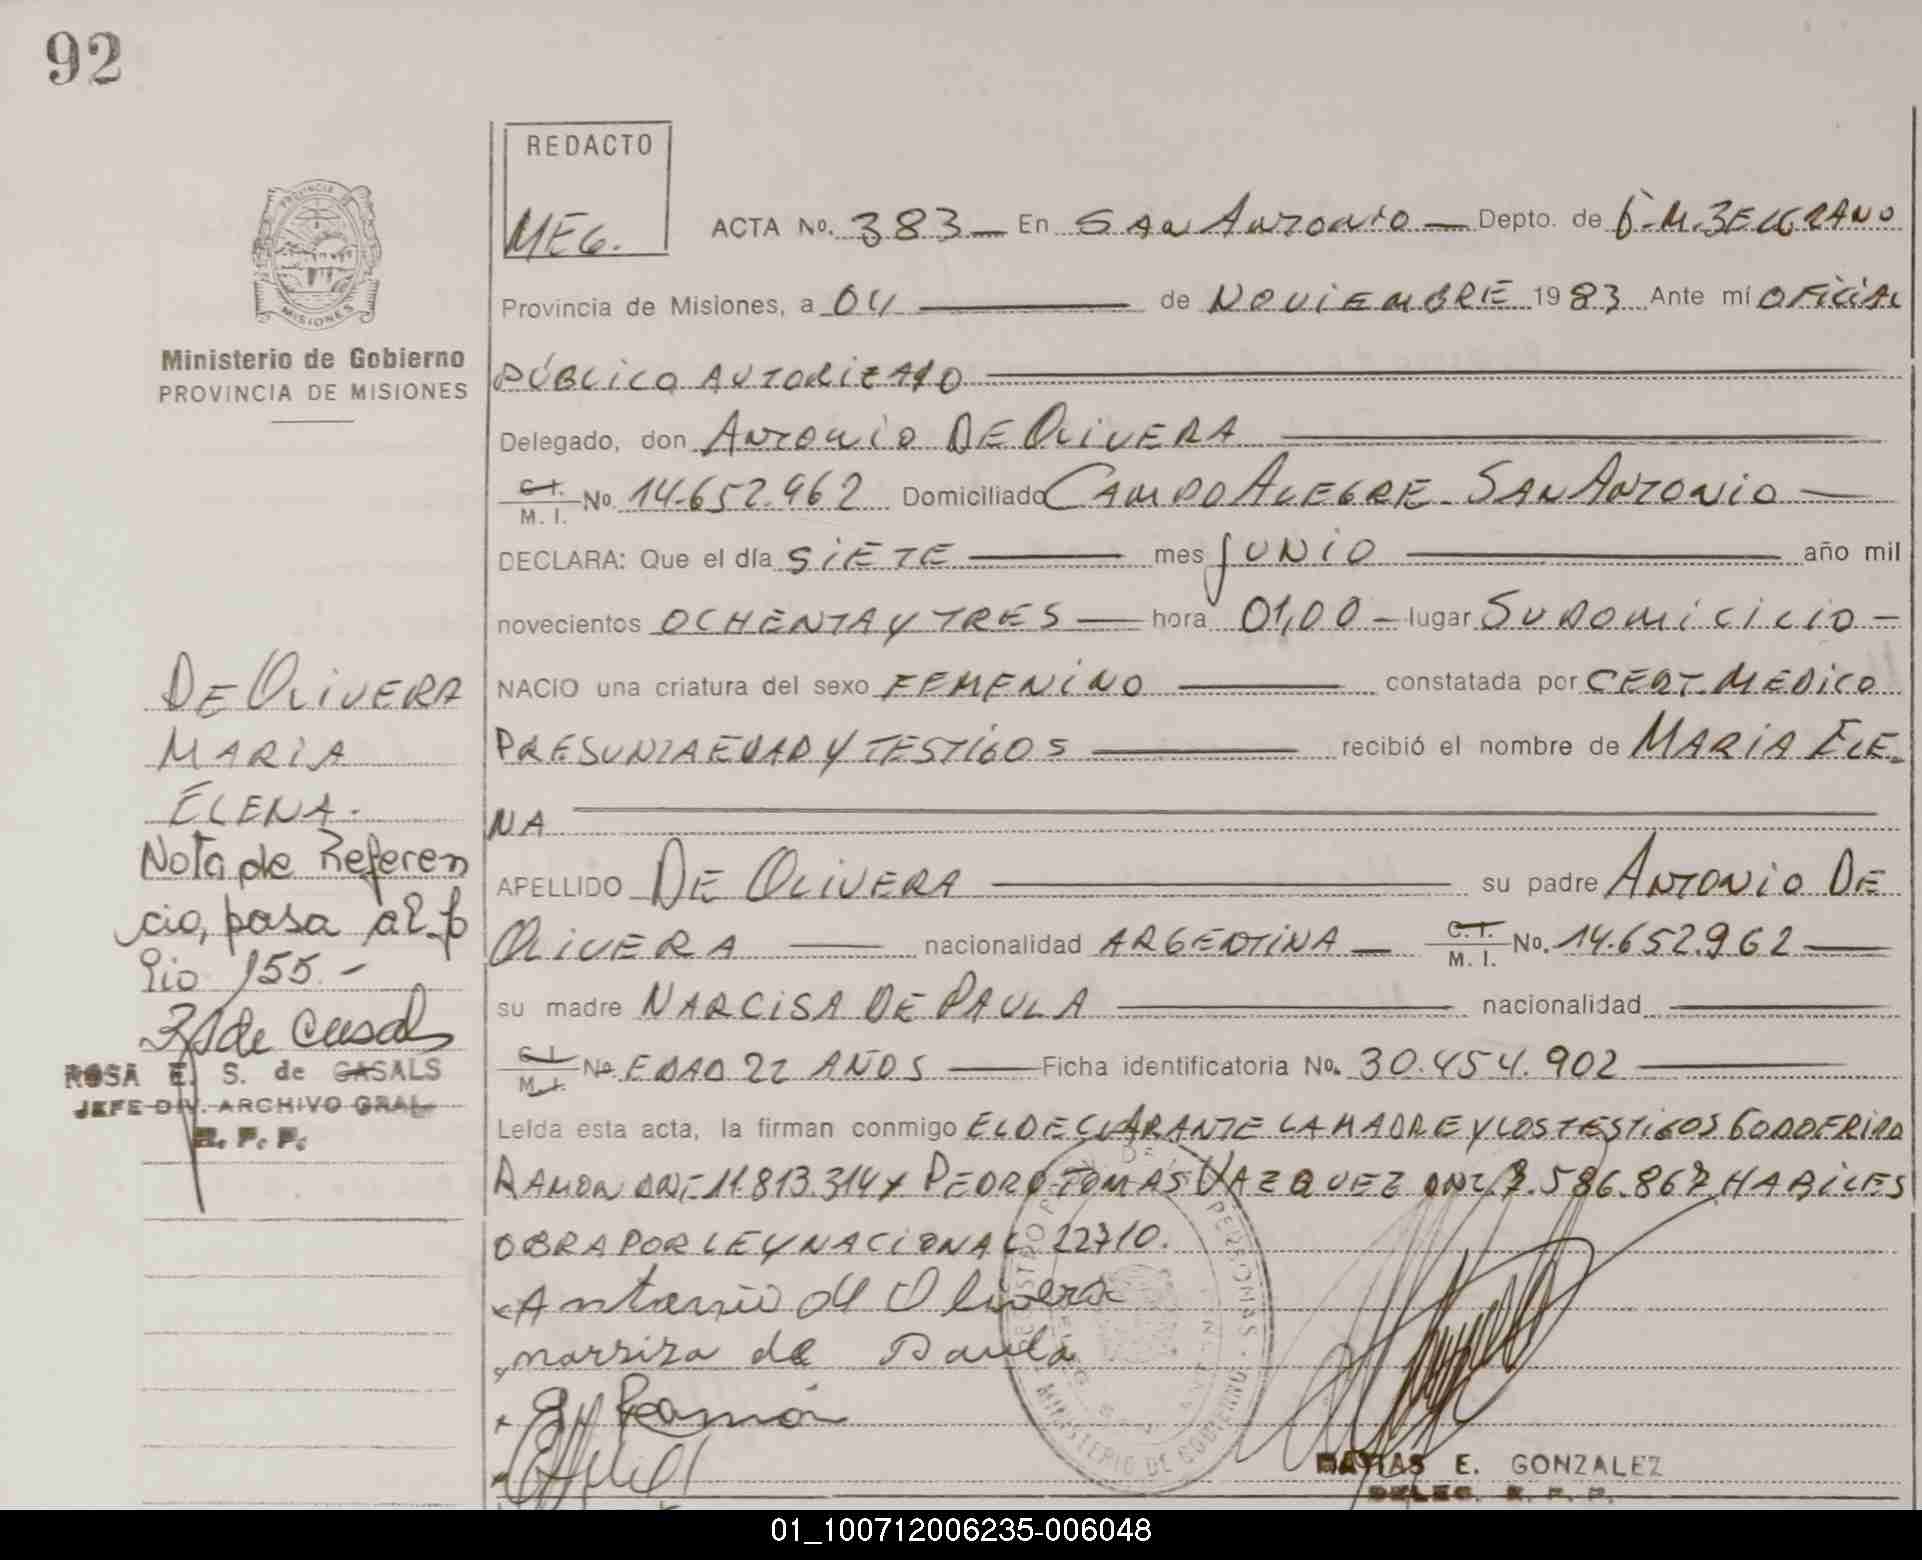 92
REDACTO
MEG.
PROVINCIA
MISIONES
Ministerio de Gobierno
PROVINCIA DE MISIONES
ACTA No. 383 — En SAN ANTONIO — Depto. de G.M. BELGRANO
Provincia de Misiones, a 04 — de NOVIEMBRE 1983 Ante mí OFICIAL
PÚBLICO AUTORIZADO —
Delegado, don ANTONIO DE OLIVERA —
C.I. / M. I. No. 14.652.962 Domiciliado CAMPO ALEGRE - SAN ANTONIO —
DECLARA: Que el día SIETE — mes JUNIO — año mil
novecientos OCHENTA Y TRES — hora 01,00 — lugar SU DOMICILIO —
NACIO una criatura del sexo FEMENINO — constatada por CERT. MEDICO
PRESUNTA EDAD Y TESTIGOS — recibió el nombre de MARIA ELE-
NA —
APELLIDO DE OLIVERA — su padre ANTONIO DE
OLIVERA — nacionalidad ARGENTINA — C.I. / M. I. No. 14.652.962 —
su madre NARCISA DE PAULA — nacionalidad —
C.I. / M.I. No EDAD 22 AÑOS — Ficha identificatoria No. 30.454.902 —
Leída esta acta, la firman conmigo EL DECLARANTE LA MADRE Y LOS TESTIGOS GODOFRIDO
RAMON DNI 11.813.314 Y PEDRO TOMAS VAZQUEZ DNI 7.586.867 HABILES
OBRA POR LEY NACIONAL 22710.
Antonio de Olivera
narsiza de Paula
Ramón
MATIAS E. GONZALEZ
DELEG. R. P. P.
MINISTERIO DE GOBIERNO
DE OLIVERA
MARIA
ELENA.
Nota de Referen
cia, pasa al fo
lio 155.-
R S de Casals
ROSA E. S. de CASALS
JEFE DIV. ARCHIVO GRAL.
R. P. P.
01_100712006235-006048